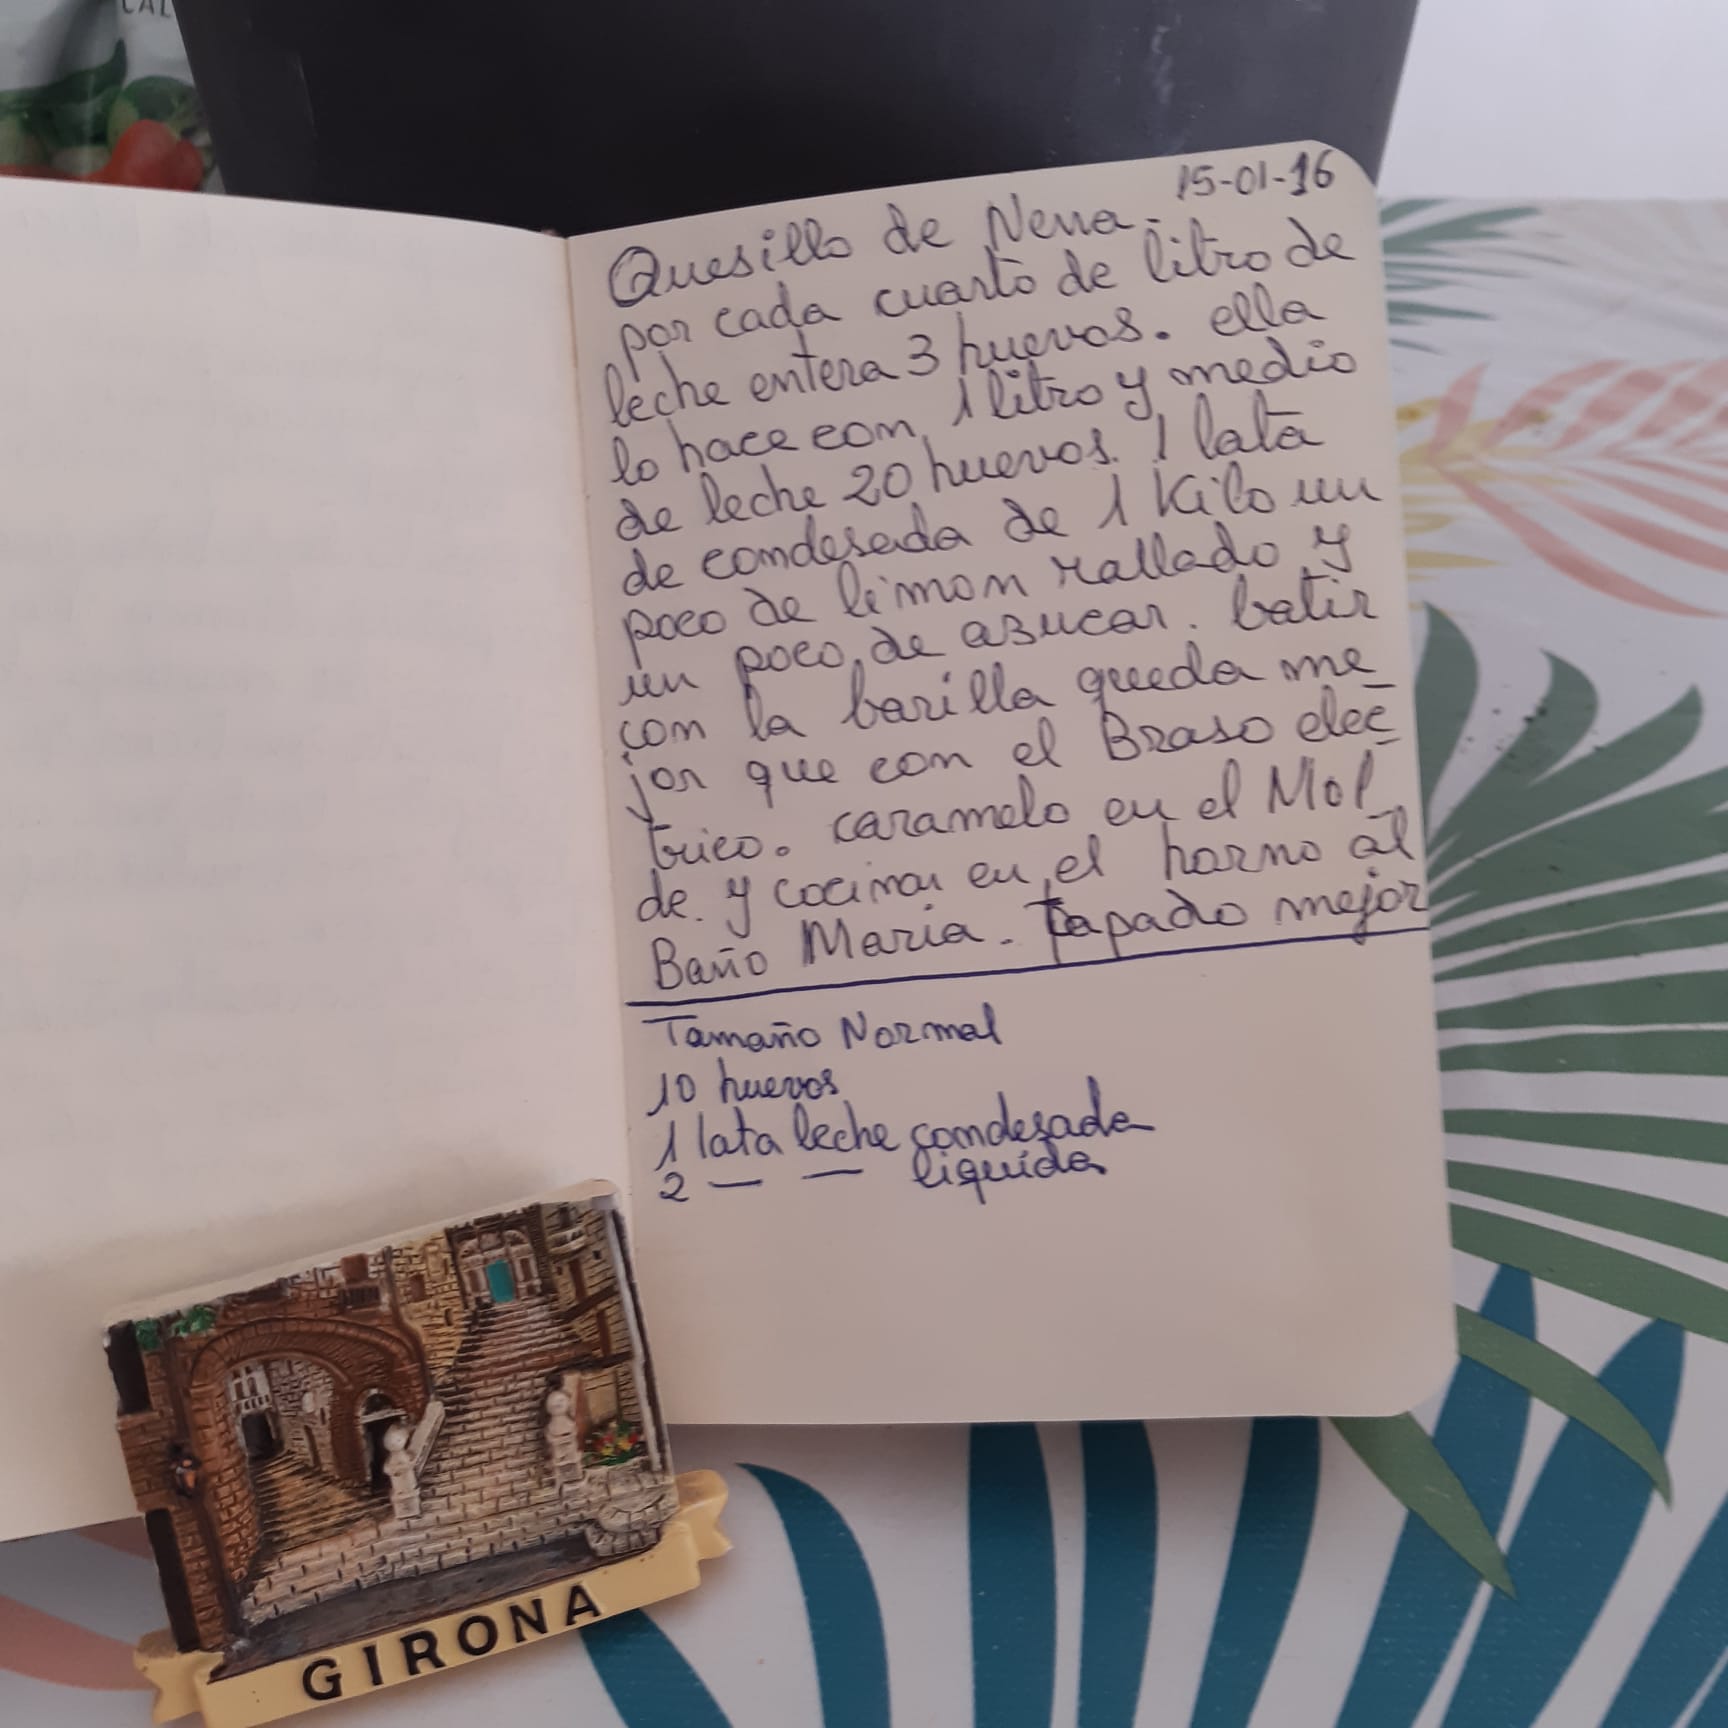 CAL
15-01-16
Quesillo de Nena.
por cada cuarto de litro de
leche entera 3 huevos. ella
lo hace con 1 litro y medio
de leche 20 huevos. 1 lata
de condesada de 1 Kilo un
poco de limon rallado y
un poco de azucar. batir
con la barilla queda me
jor que con el Braso elec
trico. caramelo en el Mol
de. y cocinar en el horno al
Baño Maria. Tapado mejor
Tamaño Normal
10 huevos
1 lata leche condesada
2 — — liquida
GIRONA